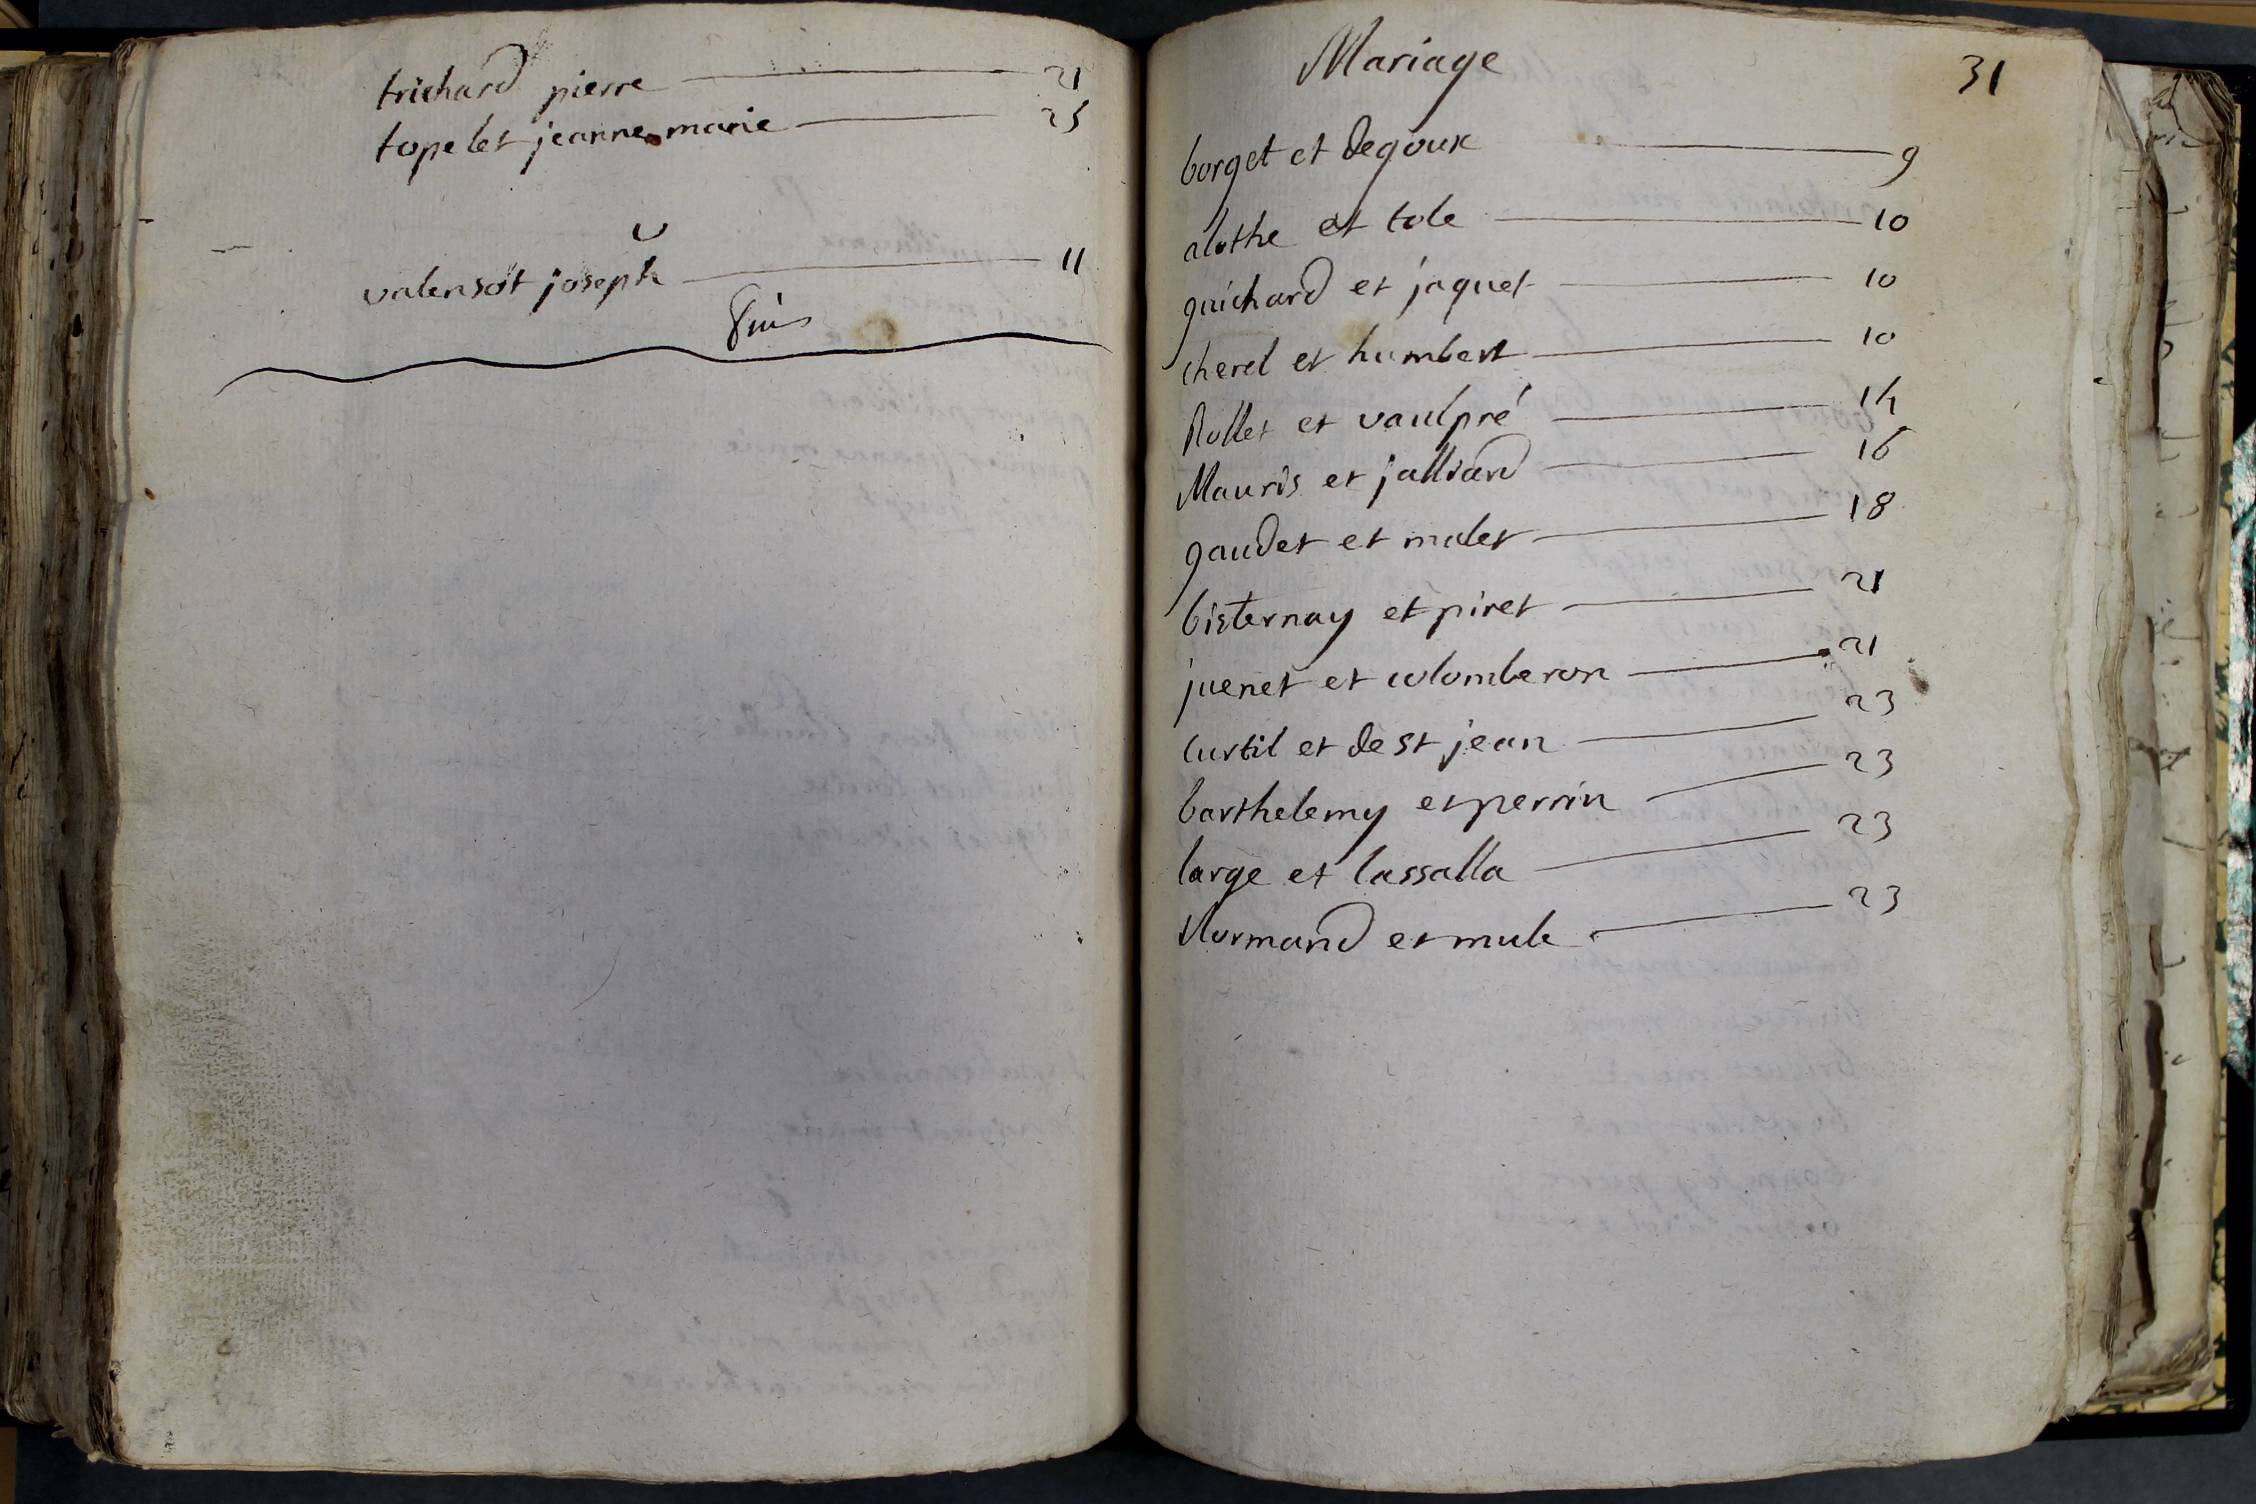 trichard pierre 21
topelet jeanne marie 25
v
valensot joseph 11
fin
31
Mariage
borget et degoux 9
alothe et tole 10
guichard et jaquet 10
cherel et humbert 10
Rollet et vaulpré 14
Mauris et jalliard 16
gaudet et molet 18
bisternay et piret 21
juenet et colomberon 21
curtil et de st jean 23
barthelemy et perrin 23
large et lassalla 23
Normand et mule 23